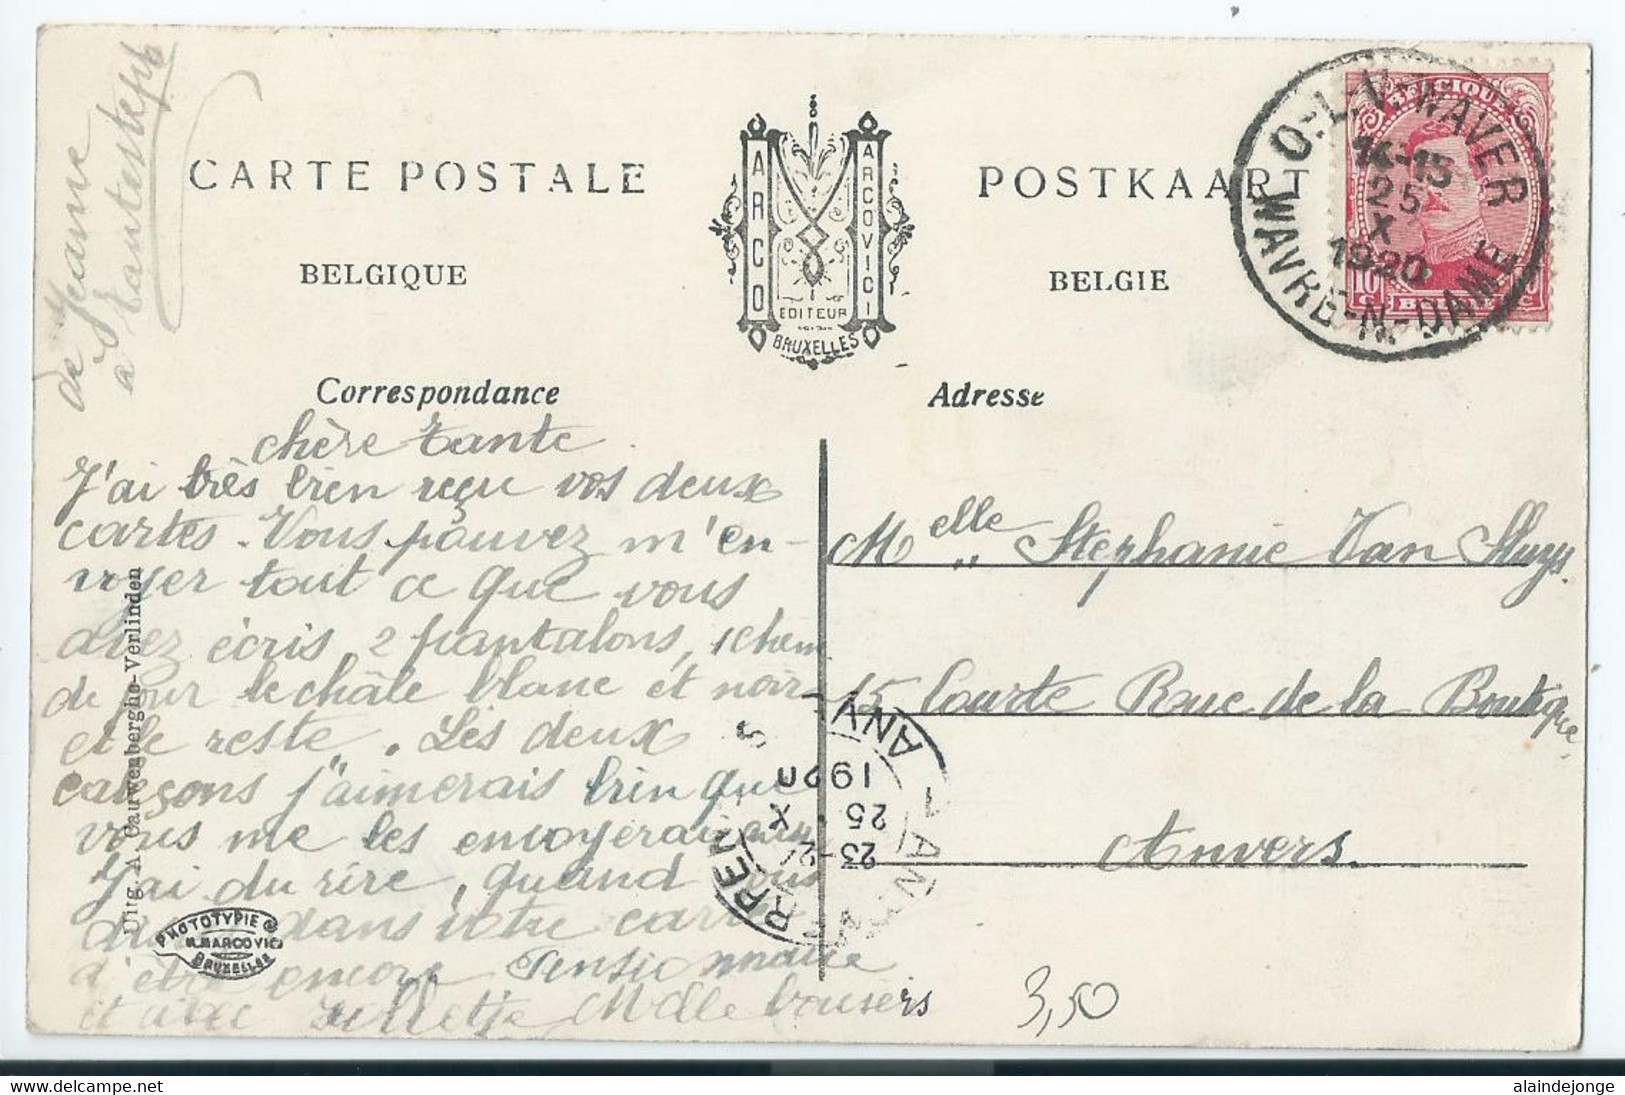 de Jeanne
a tantesteph
CARTE POSTALE
BELGIQUE
ARCO
MARCOVICI
EDITEUR
BRUXELLES
POSTKAART
BELGIE
O.-L.-V.-WAVER
14-15
25
X
1920
WAVRE-N.-DAME
BELGIQUE
10 C.
BELGIË
Correspondance
Adresse
chère tante.
J'ai très bien reçu vos deux
cartes. Vous pouvez m'en-
voyer tout ce que vous
avez écris, 2 pantalons, 1 chem
de jour le châle blanc et noir
et le reste. Les deux
caleçons j'aimerais bien que
vous me les envoyerai
J'ai du rire, quand vous
dans votre carte
d'être encore Pensionnaire
et avec Mdlle
Melle Stephanie Van Sluys.
15 Courte Rue de la Boutique
Anvers.
1920
X 25
23-24
ANTWERPEN
ANV
Uitg. A. Cauwenberghe-Verlinden
PHOTOTYPIE
M. MARCOVICI
BRUXELLES
3,50
alaindejonge